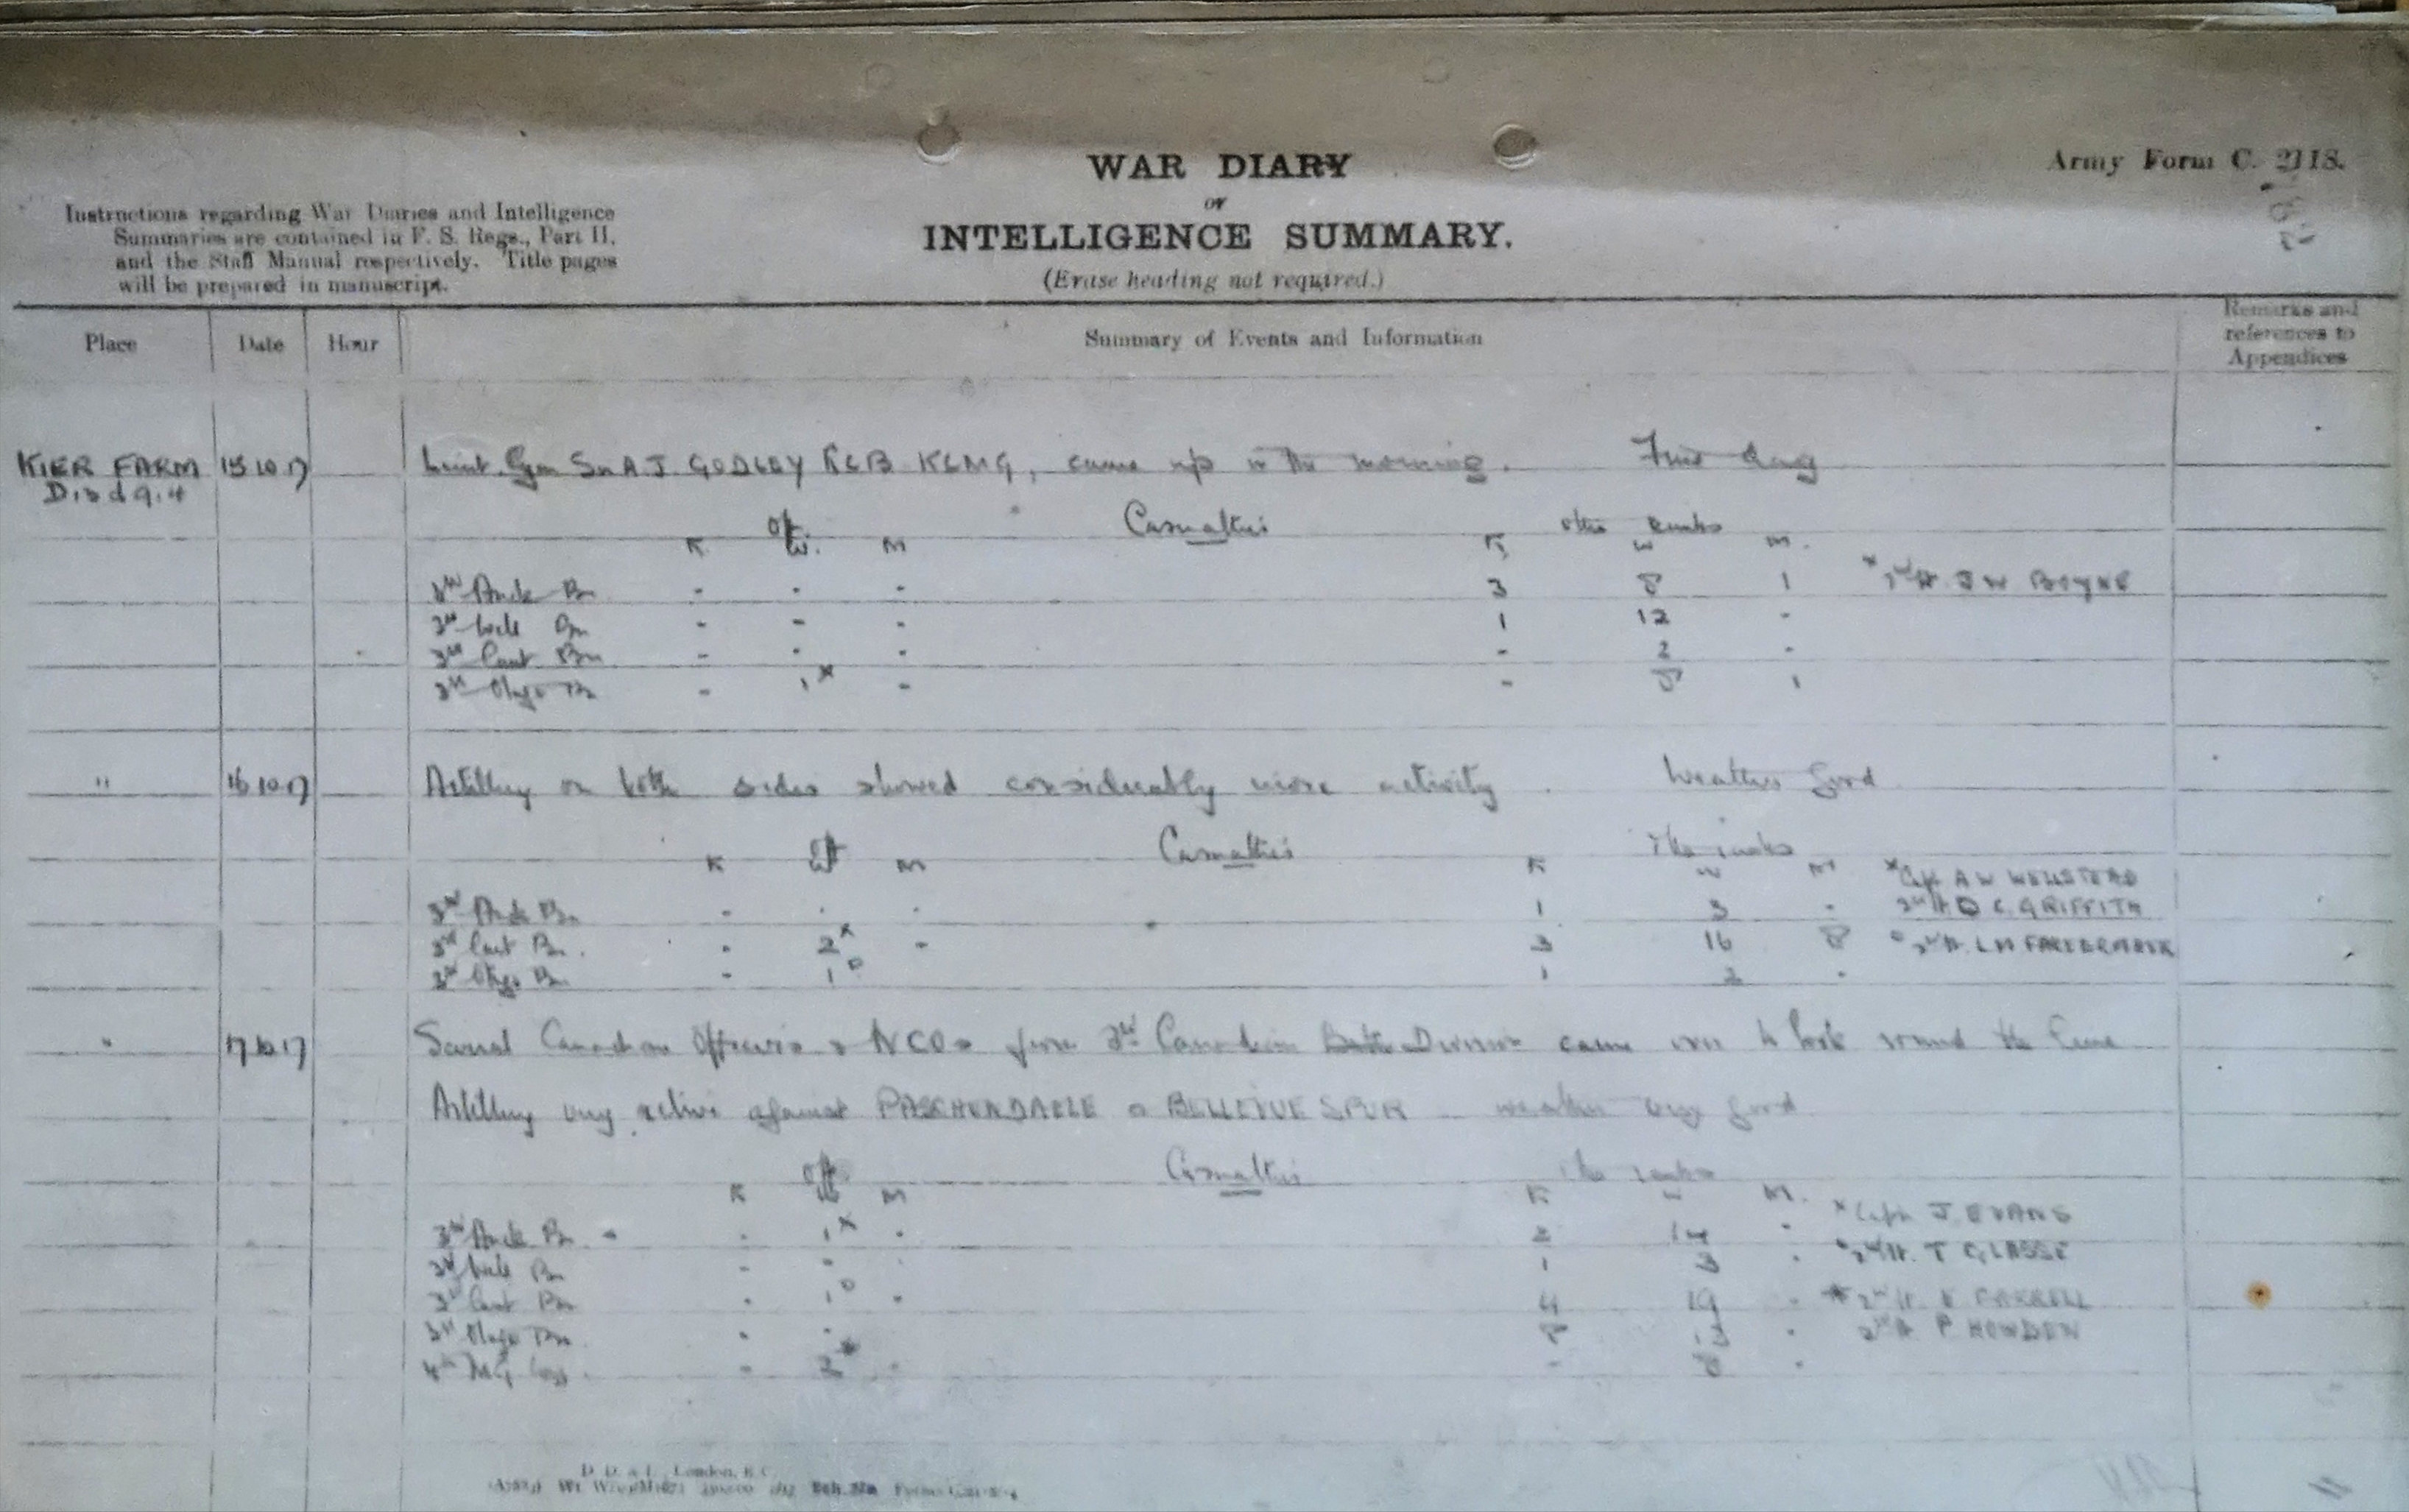 WAR DIARY
Army Form C. 2118.
or
INTELLIGENCE SUMMARY.
(Erase heading not required.)
Instructions regarding War Diaries and Intelligence
Summaries are contained in F. S. Regs., Part II,
and the Staff Manual respectively. Title pages
will be prepared in manuscript.
Place Date Hour Summary of Events and Information Remarks and
references to
Appendices
KIER FARM 15 10 17 Lieut. Gen Sir A J GODLEY KCB KCMG, came up in the morning. Fine day
D13d9.4
Off. Casualties Other Ranks
K. W. M K W M.
3rd Auck Bn - - - 3 8 1 x 2nd Lt. J W BOYNE
3rd Well Bn - - - 1 12 -
3rd Cant Bn - - - - 2 -
3rd Otago Bn - 1 x - - 8 1
" 16 10 17 Artillery on both sides showed considerably more activity. Weather good
Off Casualties Other ranks
K W M K W M x Capt A W WELLSTEAD
3rd Auck Bn - - - 1 3 - 2nd Lt D C. GRIFFITH
3rd Cant Bn. - 2 x - 3 16 8 o 2nd Lt. L H
3rd Otago Bn - 1 o 1 2 -
" 17 10 17 Several Canadian Officers & NCOs from 3rd Canadian Division came over to look round the line
Artillery very active against PASSCHENDAELE & BELLEVUE SPUR - weather very good
Off Casualties Other ranks
K W M K W M. x Capt J EVANS
3rd Auck Bn - 1 x - 2 14 - o 2nd Lt. T GLASSE
3rd Well Bn - - - 1 3 -
3rd Cant Bn - 1 o - 4 19 - * 2nd Lt
3rd Otago Bn - - 8 13 - 2nd Lt P HOWDEN
4th MG Coy - 2 * - - 8 -
D. D. & L., London, E.C.